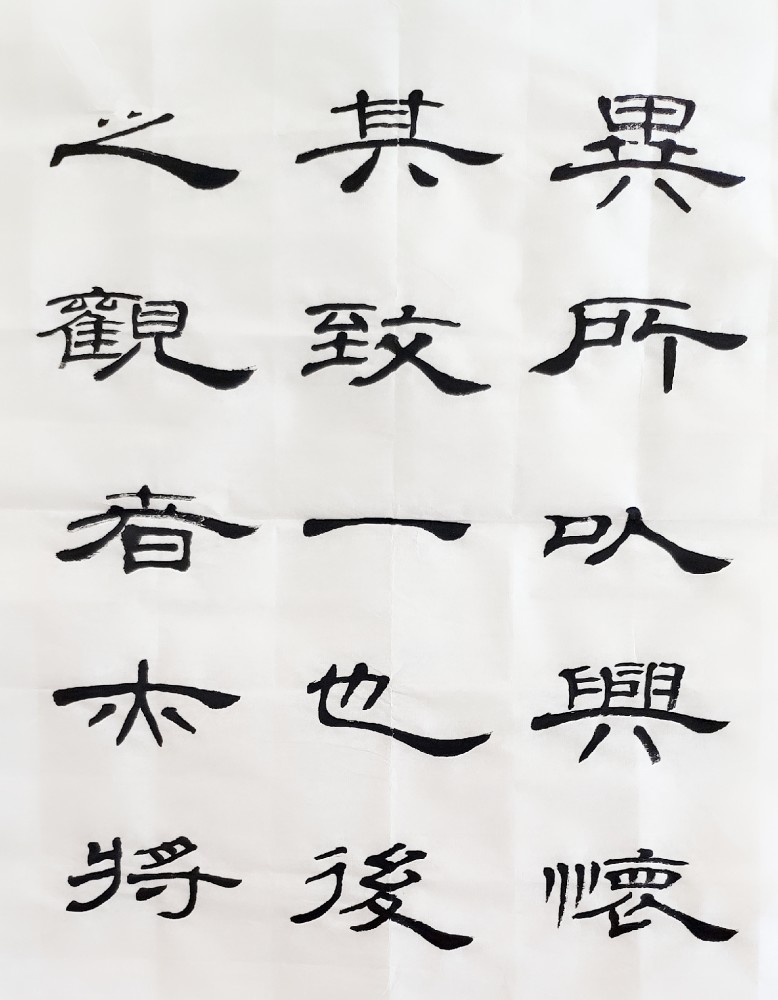 異所以興懷
其致一也後
之觀者亦將